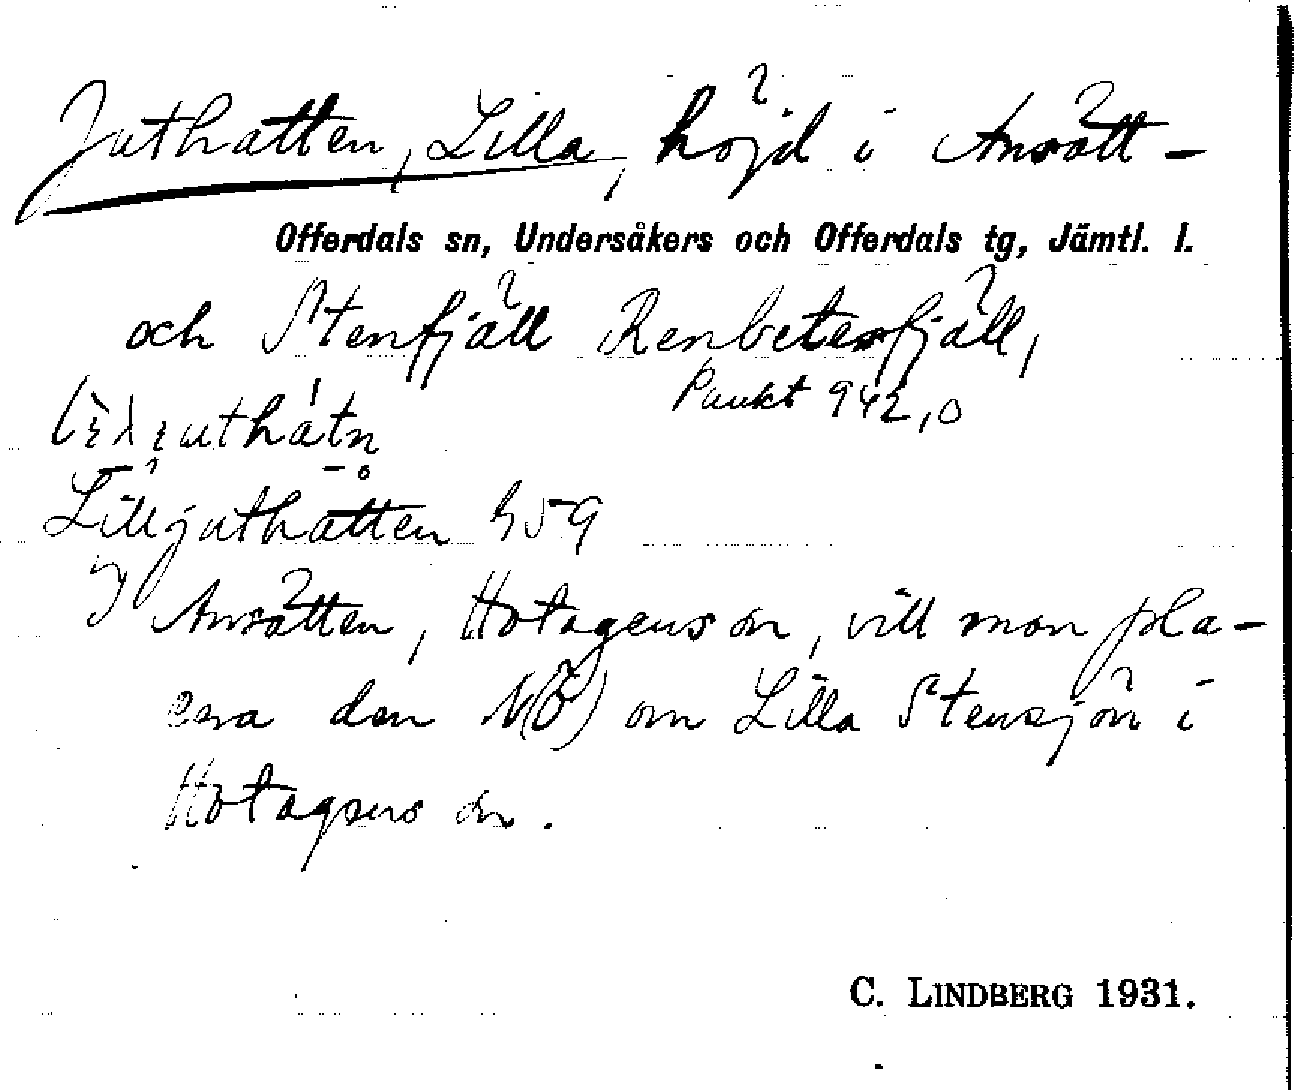 Juthatten, Lilla, höjd i Ansätt-
Offerdals sn, Undersåkers och Offerdals tg, Jämtl. l.
och Stenfjäll Renbetesfjäll,
Punkt 942,0
Lilljuthatten 459
I Ansätten, Hotagens sn, vill man pla-
cera den N(Ö) om Lilla Stensjön i
Hotagens sn.
C. LINDBERG 1931.